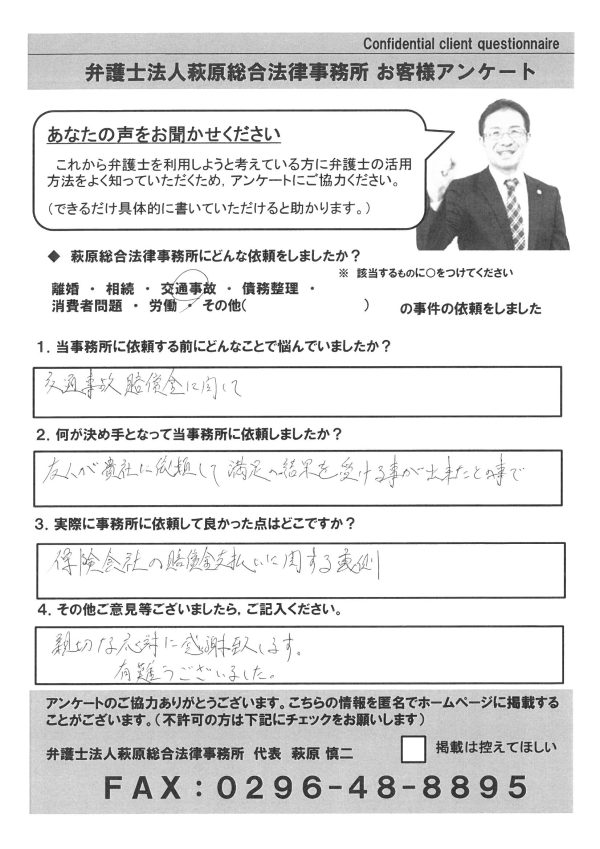 Confidential client questionnaire
弁護士法人萩原総合法律事務所 お客様アンケート
あなたの声をお聞かせください
これから弁護士を利用しようと考えている方に弁護士の活用
方法をよく知っていただくため，アンケートにご協力ください。
（できるだけ具体的に書いていただけると助かります。）
◆ 萩原総合法律事務所にどんな依頼をしましたか？
※ 該当するものに○をつけてください
離婚 ・ 相続 ・ 交通事故 ・ 債務整理 ・
消費者問題 ・ 労働 ・ その他( ) の事件の依頼をしました
１．当事務所に依頼する前にどんなことで悩んでいましたか？
交通事故賠償金に関して
２．何が決め手となって当事務所に依頼しましたか？
友人が貴社に依頼して満足の結果を受ける事が出来たとの事で
３．実際に事務所に依頼して良かった点はどこですか？
保険会社の賠償金支払いに関する裏側
４．その他ご意見等ございましたら，ご記入ください。
親切な応対に感謝致します。
有難うございました。
アンケートのご協力ありがとうございます。こちらの情報を匿名でホームページに掲載する
ことがございます。（不許可の方は下記にチェックをお願いします）
弁護士法人萩原総合法律事務所 代表 萩原 慎二
掲載は控えてほしい
ＦＡＸ：０２９６-４８-８８９５